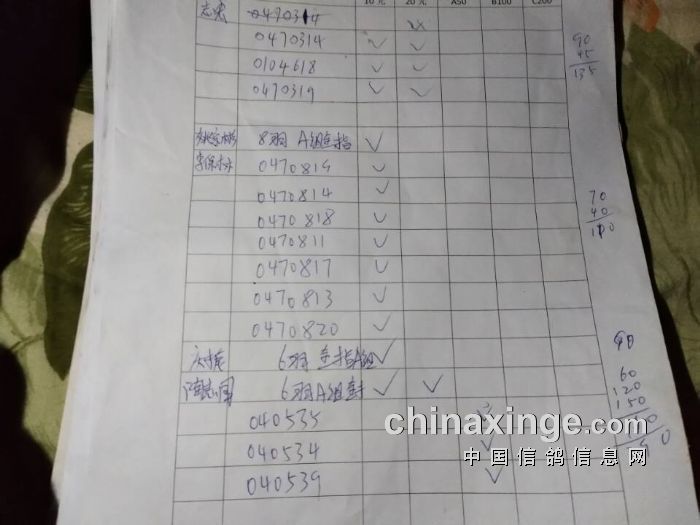 10元 20元 A50 B100 C200
0470314
0470314 ✓ ✓
90
45
135
0104618 ✓ ✓
0470319 ✓ ✓
8羽 A组 指 ✓
0470815 ✓
0470814 ✓
70
40
110
0470818 ✓
0470811 ✓
0470817 ✓
0470813 ✓
0470820 ✓
6羽 指A组 ✓
6羽A组 ✓ ✓
60
120
150
040535
040534 ✓
040539 ✓
chinaxinge.com
中国信鸽信息网